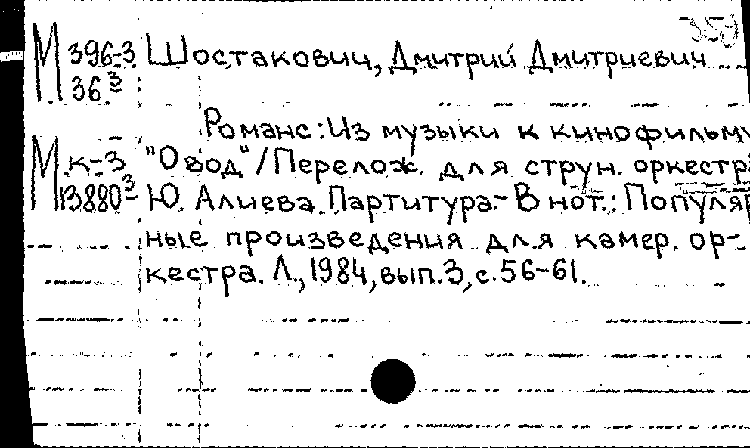 359
М 396-3 Шостакович, Дмитрий Дмитриевич
36 3
Романс: Из музыки к кинофильму
М к-3 "Овод" / Перелож. для струн. оркестра
13880 3- Ю. Алиева. Партитура.- В нот.: Популяр
ные произведения для камер. ор-
кестра. Л., 1984, вып. 3, с. 56-61.